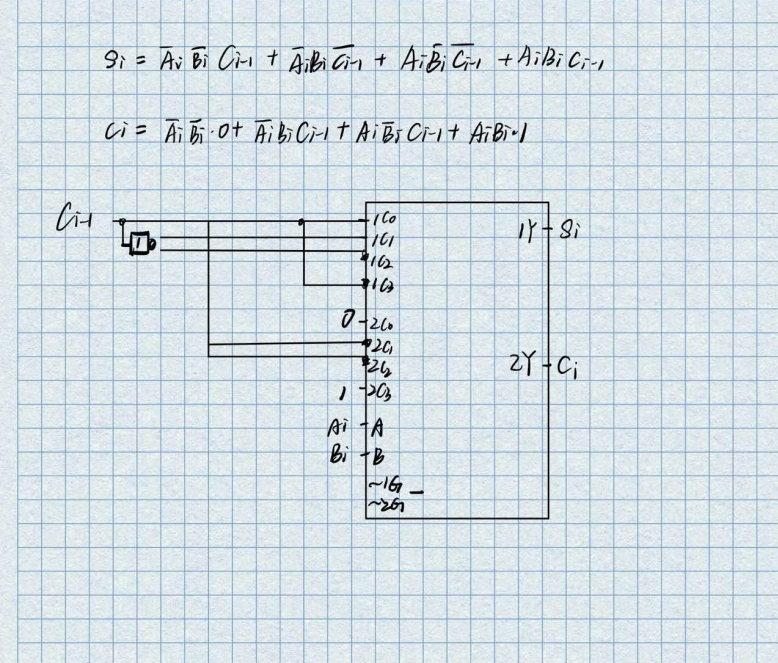 Si = A̅i B̅i Ci-1 + A̅iBi C̅i̅-̅1̅ + AiB̅i C̅i̅-̅1̅ + AiBiCi-1
Ci = A̅i B̅i·0 + A̅iBiCi-1 + AiB̅iCi-1 + AiBi·1
Ci-1
1
1C0
1C1
1C2
1C3
1Y Si
0 2C0
2C1
2C2
2Y Ci
1 2C3
Ai A
Bi B
~1G
~2G